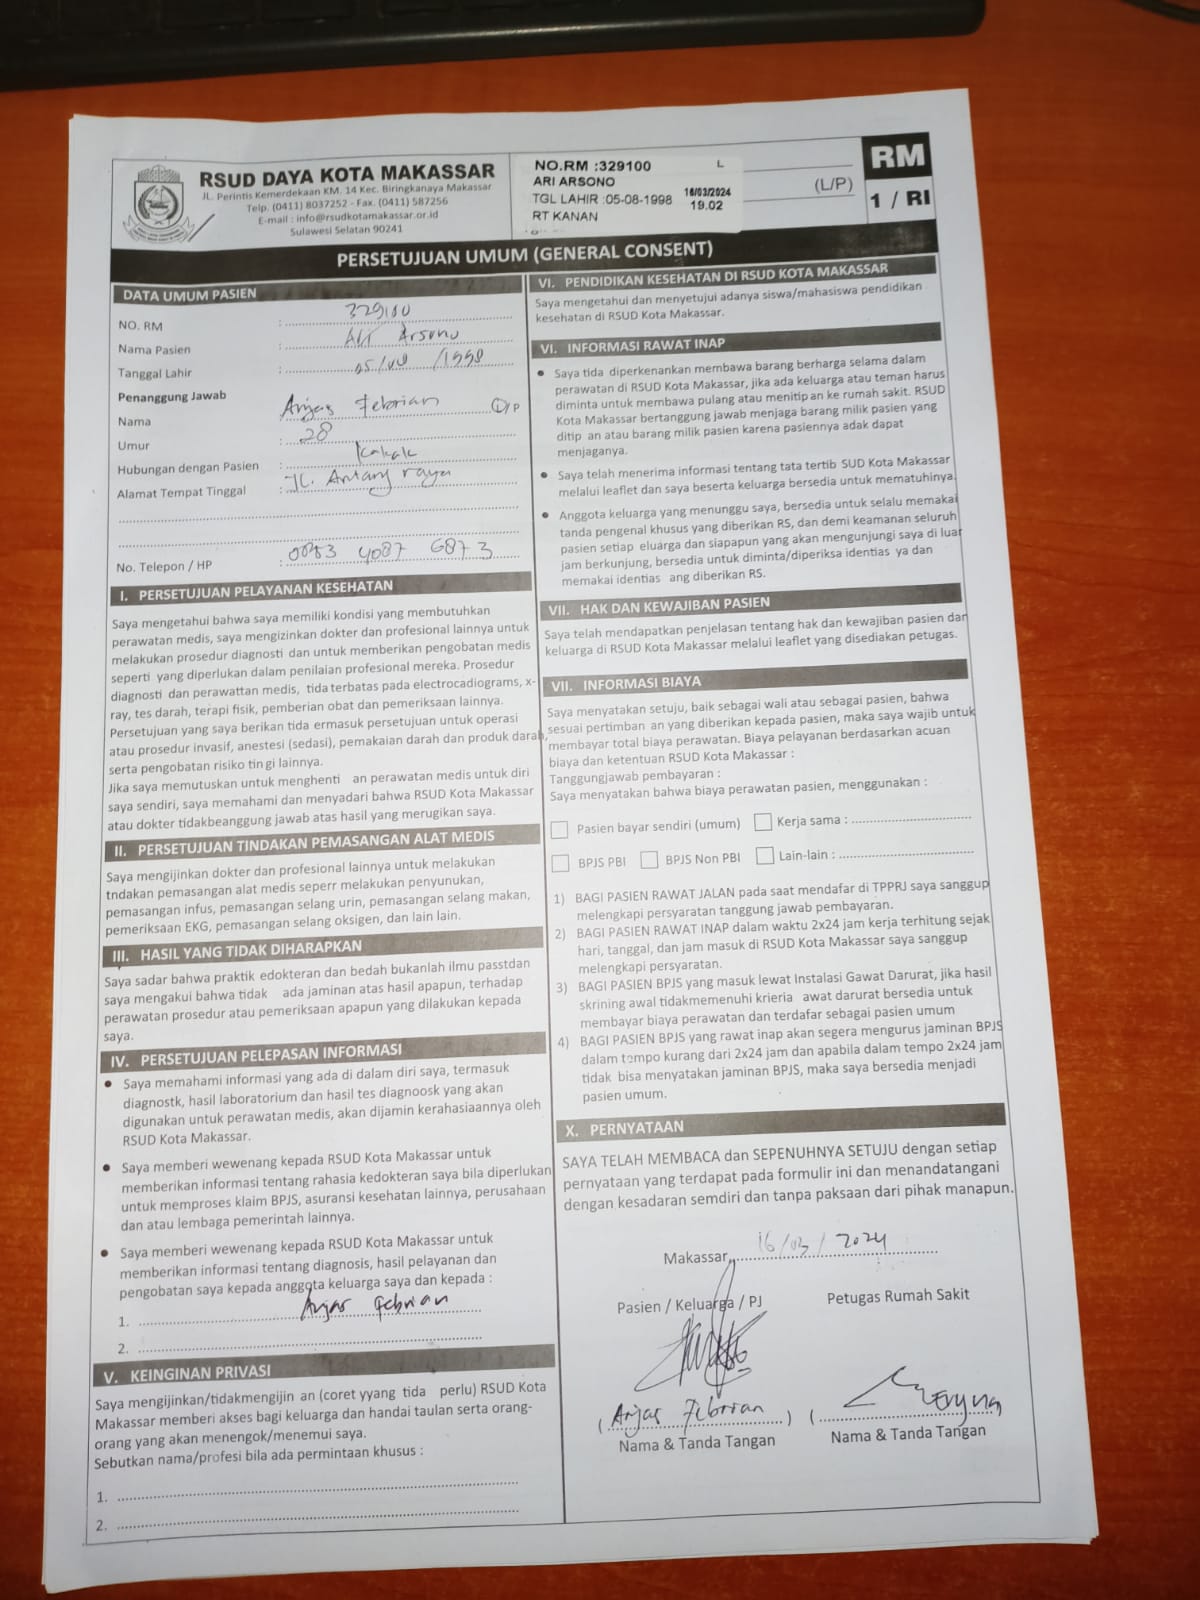 RSUD DAYA KOTA MAKASSAR
JL. Perintis Kemerdekaan KM. 14 Kec. Biringkanaya Makassar
Telp. (0411) 8037252 - Fax. (0411) 587256
E-mail : info@rsudkotamakassar.or.id
Sulawesi Selatan 90241
NO.RM :329100 L
ARI ARSONO
TGL LAHIR :05-08-1998
16/03/2024
19.02
RT KANAN
(L/P)
RM
1 / RI
PERSETUJUAN UMUM (GENERAL CONSENT)
DATA UMUM PASIEN
NO. RM : 329100
Nama Pasien : Ari Arsono
Tanggal Lahir : 05/08/1998
Penanggung Jawab
Nama : Anjas Febrian L/P
Umur : 28
Hubungan dengan Pasien : Kakak
Alamat Tempat Tinggal : Jl. Antang raya
No. Telepon / HP : 0853 4087 6873
I. PERSETUJUAN PELAYANAN KESEHATAN
Saya mengetahui bahwa saya memiliki kondisi yang membutuhkan
perawatan medis, saya mengizinkan dokter dan profesional lainnya untuk
melakukan prosedur diagnosti dan untuk memberikan pengobatan medis
seperti yang diperlukan dalam penilaian profesional mereka. Prosedur
diagnosti dan perawattan medis, tida terbatas pada electrocadiograms, x-
ray, tes darah, terapi fisik, pemberian obat dan pemeriksaan lainnya.
Persetujuan yang saya berikan tida ermasuk persetujuan untuk operasi
atau prosedur invasif, anestesi (sedasi), pemakaian darah dan produk darah,
serta pengobatan risiko tin gi lainnya.
Jika saya memutuskan untuk menghenti an perawatan medis untuk diri
saya sendiri, saya memahami dan menyadari bahwa RSUD Kota Makassar
atau dokter tidakbeanggung jawab atas hasil yang merugikan saya.
II. PERSETUJUAN TINDAKAN PEMASANGAN ALAT MEDIS
Saya mengijinkan dokter dan profesional lainnya untuk melakukan
tndakan pemasangan alat medis seperr melakukan penyunukan,
pemasangan infus, pemasangan selang urin, pemasangan selang makan,
pemeriksaan EKG, pemasangan selang oksigen, dan lain lain.
III. HASIL YANG TIDAK DIHARAPKAN
Saya sadar bahwa praktik edokteran dan bedah bukanlah ilmu passtdan
saya mengakui bahwa tidak ada jaminan atas hasil apapun, terhadap
perawatan prosedur atau pemeriksaan apapun yang dilakukan kepada
saya.
IV. PERSETUJUAN PELEPASAN INFORMASI
● Saya memahami informasi yang ada di dalam diri saya, termasuk
diagnostk, hasil laboratorium dan hasil tes diagnoosk yang akan
digunakan untuk perawatan medis, akan dijamin kerahasiaannya oleh
RSUD Kota Makassar.
● Saya memberi wewenang kepada RSUD Kota Makassar untuk
memberikan informasi tentang rahasia kedokteran saya bila diperlukan
untuk memproses klaim BPJS, asuransi kesehatan lainnya, perusahaan
dan atau lembaga pemerintah lainnya.
● Saya memberi wewenang kepada RSUD Kota Makassar untuk
memberikan informasi tentang diagnosis, hasil pelayanan dan
pengobatan saya kepada anggota keluarga saya dan kepada :
1. Anjas Febrian
2.
V. KEINGINAN PRIVASI
Saya mengijinkan/tidakmengijin an (coret yyang tida perlu) RSUD Kota
Makassar memberi akses bagi keluarga dan handai taulan serta orang-
orang yang akan menengok/menemui saya.
Sebutkan nama/profesi bila ada permintaan khusus :
1.
2.
VI. PENDIDIKAN KESEHATAN DI RSUD KOTA MAKASSAR
Saya mengetahui dan menyetujui adanya siswa/mahasiswa pendidikan
kesehatan di RSUD Kota Makassar.
VI. INFORMASI RAWAT INAP
● Saya tida diperkenankan membawa barang berharga selama dalam
perawatan di RSUD Kota Makassar, jika ada keluarga atau teman harus
diminta untuk membawa pulang atau menitip an ke rumah sakit. RSUD
Kota Makassar bertanggung jawab menjaga barang milik pasien yang
ditip an atau barang milik pasien karena pasiennya adak dapat
menjaganya.
● Saya telah menerima informasi tentang tata tertib SUD Kota Makassar
melalui leaflet dan saya beserta keluarga bersedia untuk mematuhinya.
● Anggota keluarga yang menunggu saya, bersedia untuk selalu memakai
tanda pengenal khusus yang diberikan RS, dan demi keamanan seluruh
pasien setiap eluarga dan siapapun yang akan mengunjungi saya di luar
jam berkunjung, bersedia untuk diminta/diperiksa identias ya dan
memakai identias ang diberikan RS.
VII. HAK DAN KEWAJIBAN PASIEN
Saya telah mendapatkan penjelasan tentang hak dan kewajiban pasien dan
keluarga di RSUD Kota Makassar melalui leaflet yang disediakan petugas.
VII. INFORMASI BIAYA
Saya menyatakan setuju, baik sebagai wali atau sebagai pasien, bahwa
sesuai pertimban an yang diberikan kepada pasien, maka saya wajib untuk
membayar total biaya perawatan. Biaya pelayanan berdasarkan acuan
biaya dan ketentuan RSUD Kota Makassar :
Tanggungjawab pembayaran :
Saya menyatakan bahwa biaya perawatan pasien, menggunakan :
Pasien bayar sendiri (umum) Kerja sama :
BPJS PBI BPJS Non PBI Lain-lain :
1) BAGI PASIEN RAWAT JALAN pada saat mendafar di TPPRJ saya sanggup
melengkapi persyaratan tanggung jawab pembayaran.
2) BAGI PASIEN RAWAT INAP dalam waktu 2x24 jam kerja terhitung sejak
hari, tanggal, dan jam masuk di RSUD Kota Makassar saya sanggup
melengkapi persyaratan.
3) BAGI PASIEN BPJS yang masuk lewat Instalasi Gawat Darurat, jika hasil
skrining awal tidakmemenuhi krieria awat darurat bersedia untuk
membayar biaya perawatan dan terdafar sebagai pasien umum
4) BAGI PASIEN BPJS yang rawat inap akan segera mengurus jaminan BPJS
dalam tempo kurang dari 2x24 jam dan apabila dalam tempo 2x24 jam
tidak bisa menyatakan jaminan BPJS, maka saya bersedia menjadi
pasien umum.
X. PERNYATAAN
SAYA TELAH MEMBACA dan SEPENUHNYA SETUJU dengan setiap
pernyataan yang terdapat pada formulir ini dan menandatangani
dengan kesadaran semdiri dan tanpa paksaan dari pihak manapun.
Makassar, 16/03/2024
Pasien / Keluarga / PJ Petugas Rumah Sakit
( Anjas Febrian ) (
Nama & Tanda Tangan Nama & Tanda Tangan